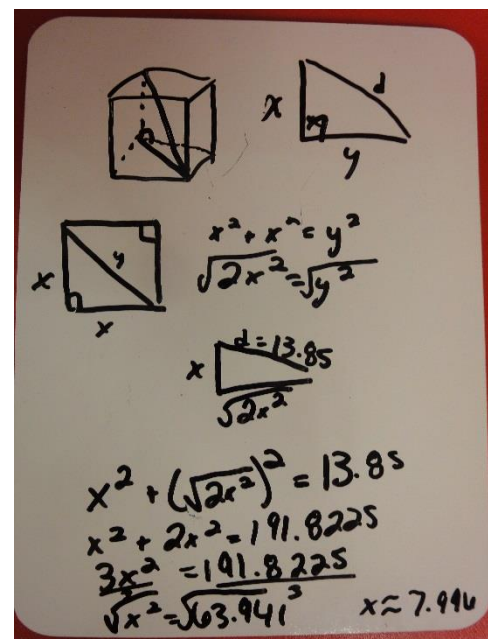 x d
y
x y
x
x² + x² = y²
√2x² = √y²
d = 13.85
x
√2x²
x² + (√2x²)² = 13.85
x² + 2x² = 191.8225
3x² = 191.8225
√x² = √63.941 3 x ≈ 7.996